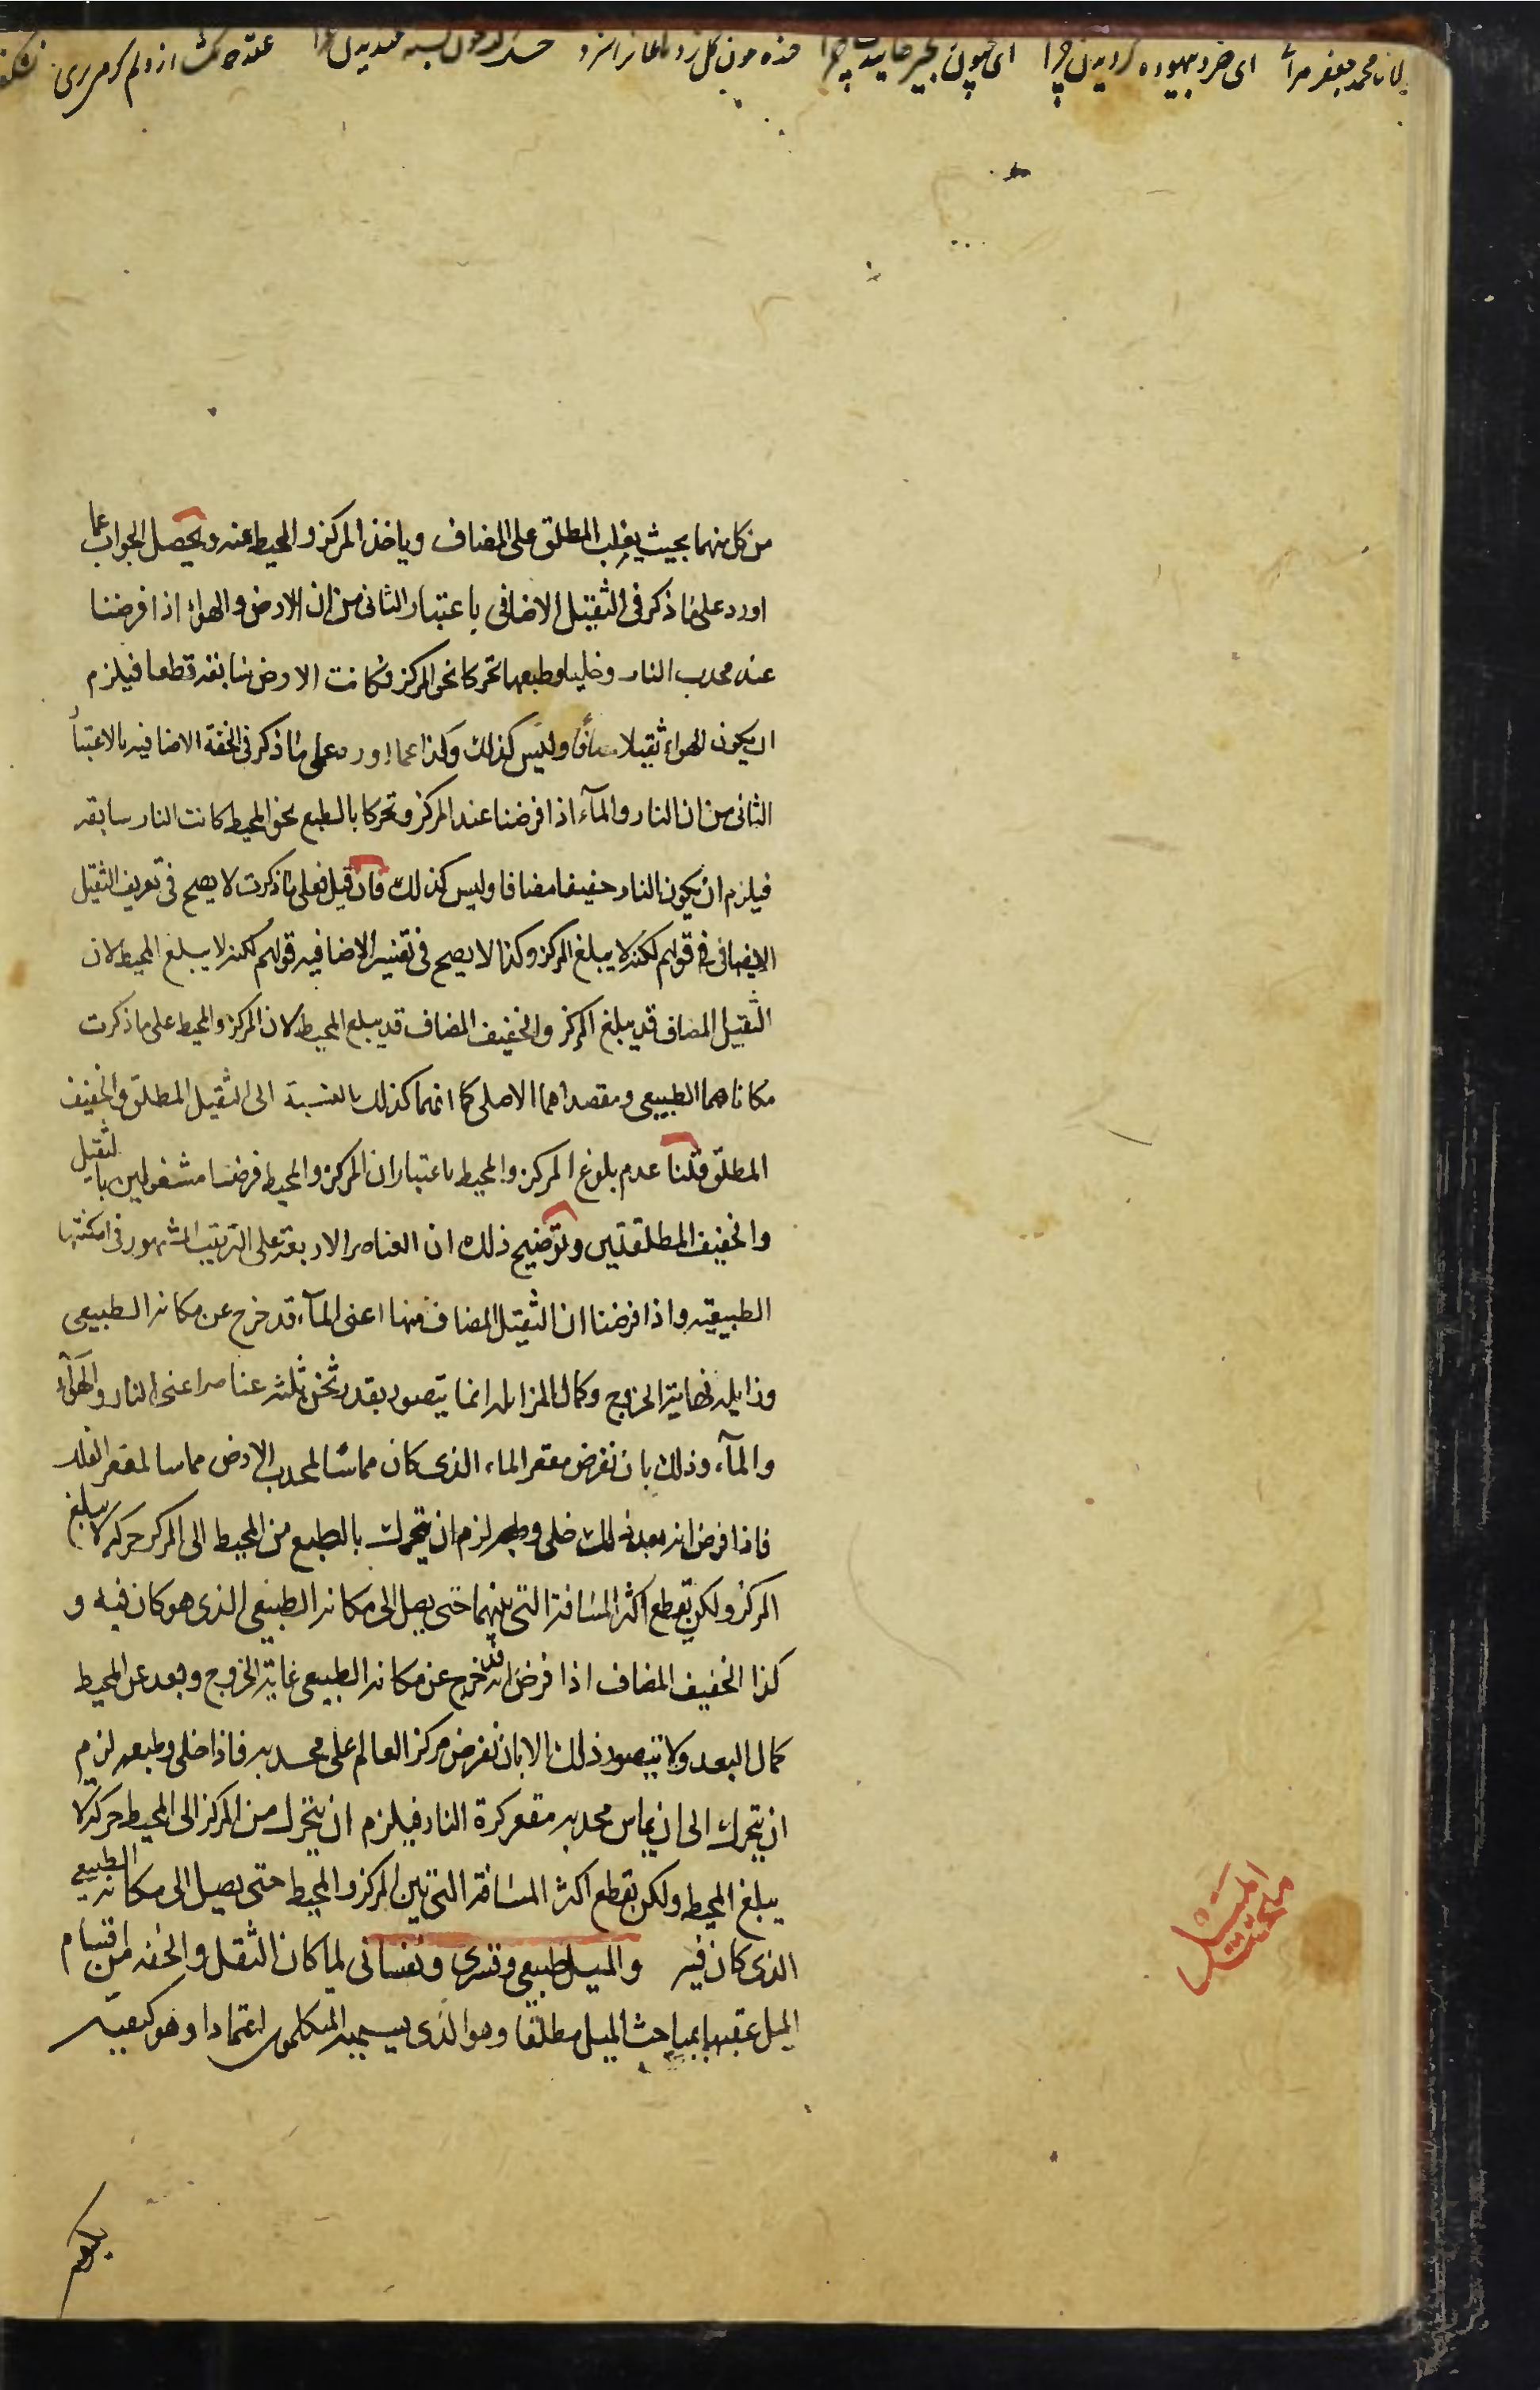 محمد جعفر
ای خرد بیهوده گردیدن چرا
ای
من كل منهما بحيث يغلب المطلق على المضاف وياخذ المركز والمحيط عنه ويحصل الجواب عما
اورد على ما ذكر فى الثقيل الاضافى باعتبار الثانى من ان الارض والهواء اذا فرضنا
عند محدب النار وخليا وطبعهما تحركا نحو المركز فكانت الارض سابقه قطعا فيلزم
ان يكون الهواء ثقيلا مضافا وليس كذلك وكذا عما اورد على ما ذكر فى الخفة الاضافيه بالاعتبار
الثانى من ان النار والمآء اذا فرضنا عند المركز وتحركا بالطبع نحو المحيط كانت النار سابقه
فيلزم ان يكون النار خفيفا مضافا وليس كذلك فان قيل فعلى ما ذكرت لا يصح فى تعريف الثقيل
الاضافى فى قولهم لكنه لا يبلغ المركز وكذا لا يصح فى تفسير الاضافيه قولهم لكنه لا يبلغ المحيط لان
الثقيل المضاف قد يبلغ المركز والخفيف المضاف قد يبلغ المحيط لان المركز والمحيط على ما ذكرت
مكاناهما الطبيعى ومقصداهما الاصلى كما انهما كذلك بالنسبة الى الثقيل المطلق والخفيف
المطلق قلنا عدم بلوغ المركز والمحيط باعتبار ان المركز والمحيط فرضنا مشغولين بالثقيل
والخفيف المطلقتين وتوضيح ذلك ان العناصر الاربعة على الترتيب المشهور فى امكنتها
الطبيعيه واذا فرضنا ان الثقيل المضاف منها اعنى المآء قد خرج عن مكانه الطبيعى
وزايله نهاية الخروج وكمال المزايله انما يتصور بقدر ثخن ثلثه عناصر اعنى النار والهوآء
والمآء وذلك بان نفرض مقعر الماء الذى كان مماسا لمحدب الارض مماسا لمقعر الفلك
فاذا فرض انه بعد ذلك خلى وطبعه لزم ان يتحرك بالطبع من المحيط الى المركز حركه لا يبلغ
المركز ولكن تقطع اكثر المسافة التى بينهما حتى يصل الى مكانه الطبيعى الذى هو كان فيه و
كذا الخفيف المضاف اذا فرض انه قد خرج عن مكانه الطبيعى غاية الخروج وبعد عن المحيط
كمال البعد ولا يتصور ذلك الا بان نفرض مركز العالم على محدبه فاذا خلى وطبعه لزم
ان يتحرك الى ان يماس محدبه مقعر كرة النار فيلزم ان يتحرك من المركز الى المحيط حركة لا
يبلغ المحيط ولكن تقطع اكثر المسافة التى بين المركز والمحيط حتى يصل الى مكانه الطبيعى
الذى كان فيه والميل طبيعى وقسرى ونفسانى لما كان الثقل والخفه من اقسام
الميل عقبهما بمباحث الميل مطلقا وهو الذى يسميه المتكلمون اعتمادا وهو كيفيه
مبحث
الميل